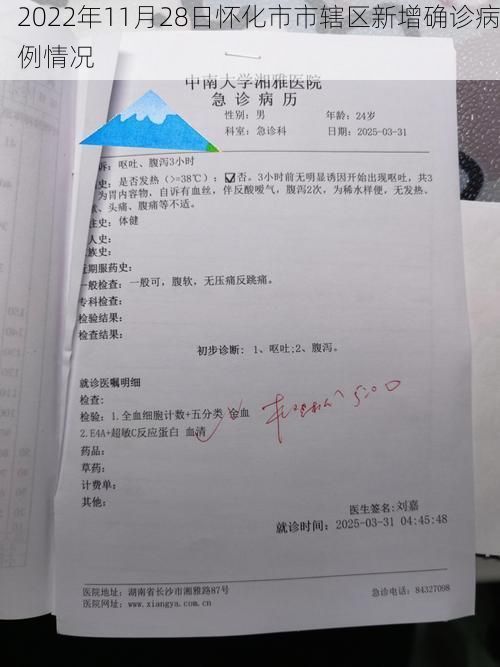 2022年11月28日怀化市市辖区新增确诊病
例情况
中南大学湘雅医院
急诊病历
性别：男 年龄：24岁
科室：急诊科 日期：2025-03-31
诉：呕吐、腹泻3小时
史：是否发热（>=38℃）：☑否。3小时前无明显诱因开始出现呕吐，共3
为胃内容物，自诉有血丝，伴反酸嗳气，腹泻2次，为稀水样便，无发热、
、头痛、腹痛等不适。
往史：体健
人史：
族史：
近期服药史：
一般检查：一般可，腹软，无压痛反跳痛。
专科检查：
检验结果：
检查结果：
初步诊断：1、呕吐;2、腹泻。
就诊医嘱明细
检查：
检验：1.全血细胞计数+五分类 全血
2.E4A+超敏C反应蛋白 血清
5:00
药品：
草药：
计费单：
其他：
医生签名:刘嘉
就诊时间：2025-03-31 04:45:48
医院地址：湖南省长沙市湘雅路87号 急诊电话：84327098
医院网址：www.xiangya.com.cn